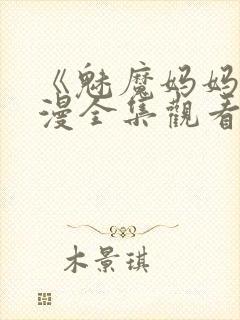 《魅魔妈妈
漫全集觀看
木景琪